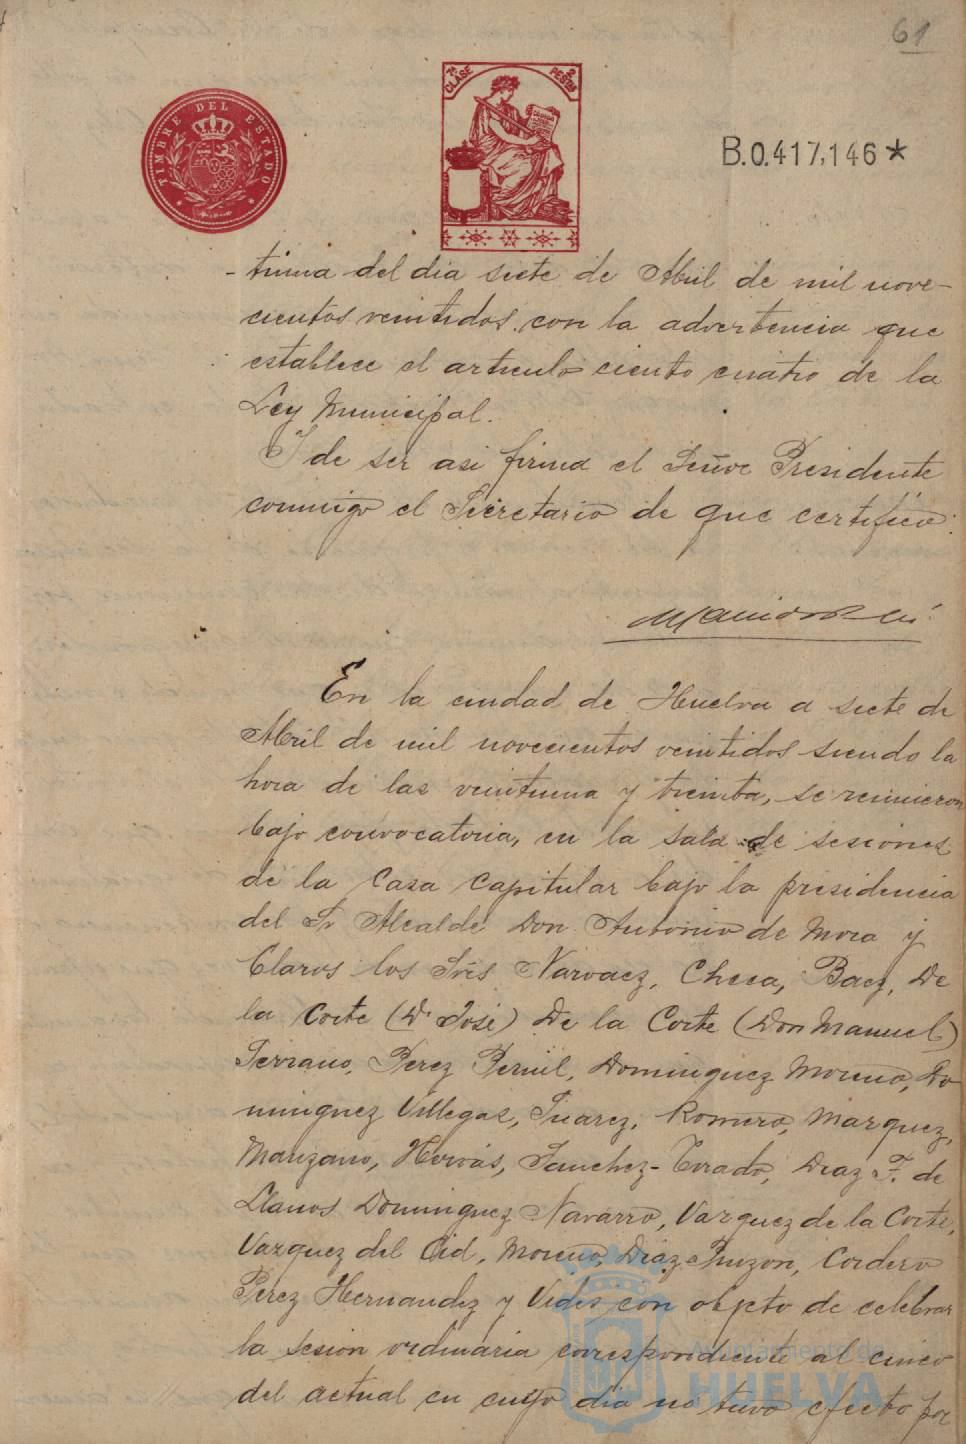 61
TIMBRE DEL ESTADO
7ª CLASE
2 PESETAS
B.0.417,146*
-tiuna del dia siete de Abril de mil nove-
cientos veintidos con la advertencia que
establece el articulo ciento cuatro de la
Ley Municipal.
Y de ser asi firma el Señor Presidente
conmigo el Secretario de que certifico.
En la ciudad de Huelva a siete de
Abril de mil novecientos veintidos siendo la
hora de las veintiuna y treinta, se reunieron
bajo convocatoria, en la sala de sesiones
de la Casa Capitular bajo la presidencia
del Sr Alcalde Don Antonio de Mora y
Claros los Sres Narvaez, Checa, Baez, De
la Corte (Dn José) De la Corte (Don Manuel)
Serrano, Perez Pernil, Dominguez Moreno, Do
minguez Villegas, Suarez, Romero, Marquez,
Manzano, Hervás, Sanchez-Tirado, Diaz F. de
Llanos Dominguez Navarro, Vazquez de la Corte,
Vazquez del Cid, Moreno, Diaz Pinzon, Cordero
Perez Hernandez y Vides con objeto de celebrar
la sesion ordinaria correspondiente al cinco
del actual en cuyo dia no tuvo efecto por
Ayuntamiento de
HUELVA